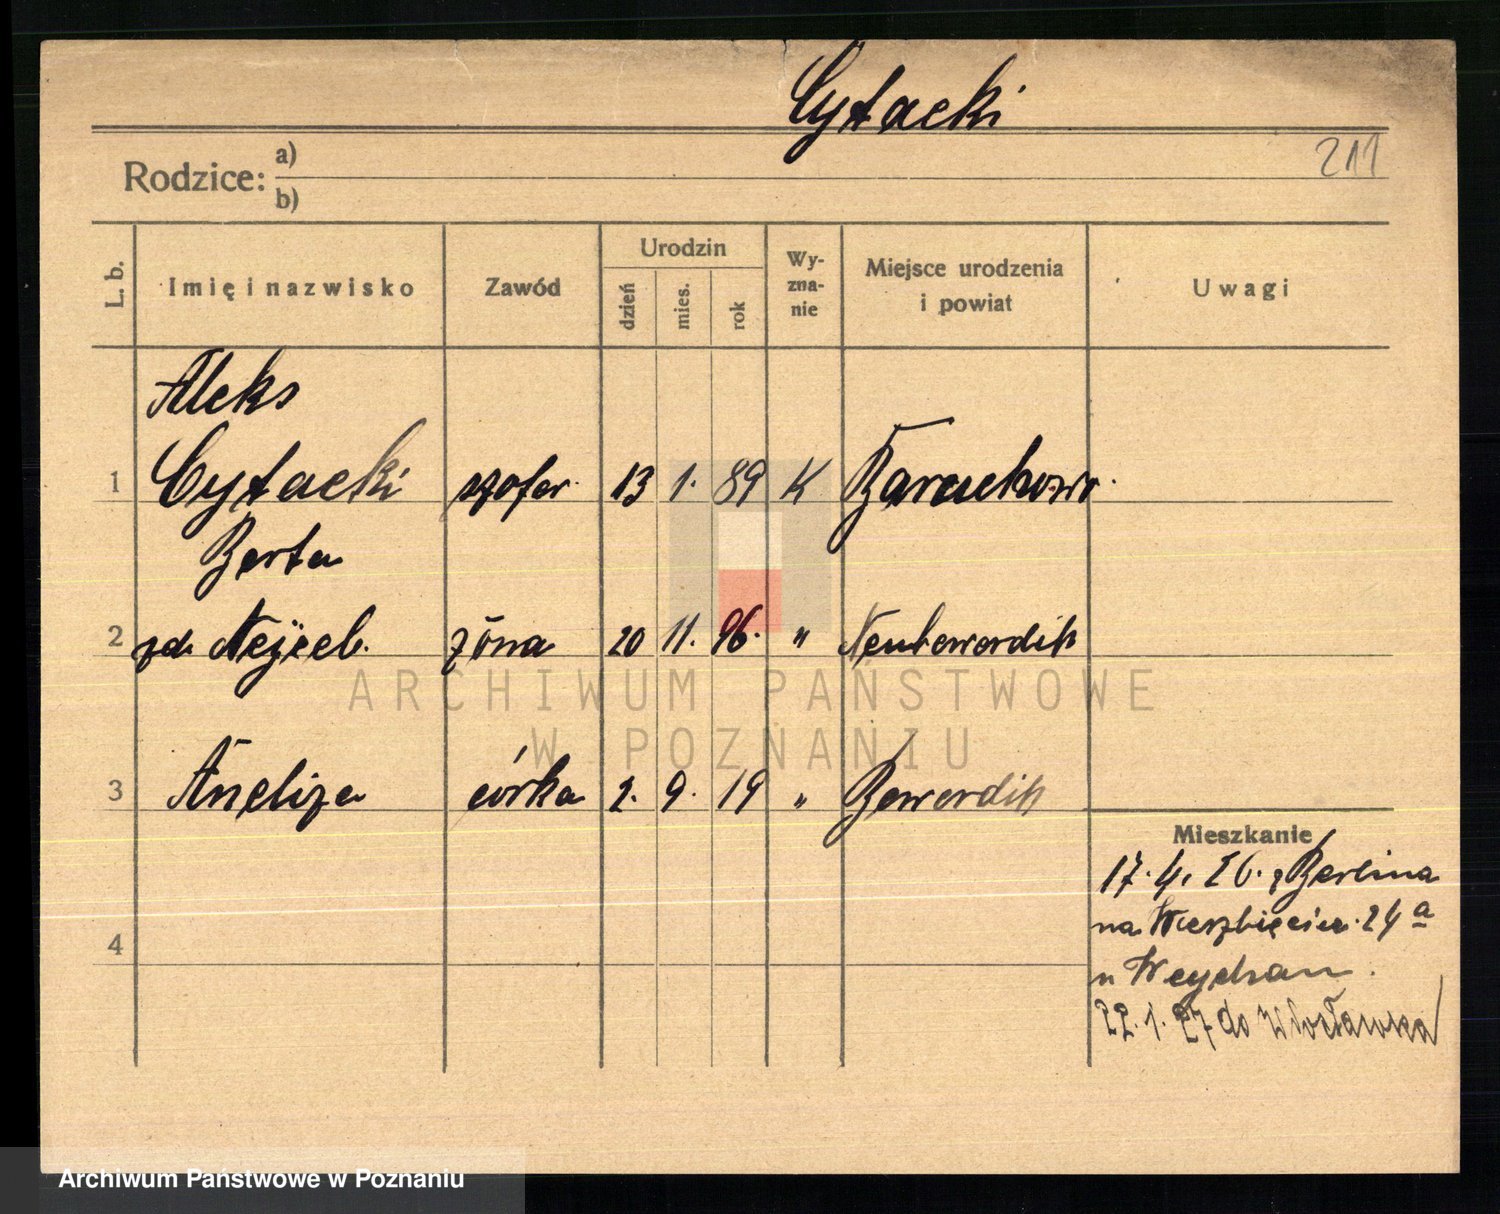 Cytacki
211
Rodzice: a)
b)
L. b.
Imię i nazwisko
Zawód
Urodzin
dzień
mies.
rok
Wy-
zna-
nie
Miejsce urodzenia
i powiat
Uwagi
Aleks
1 Cytacki szofer 13 1. 89 K
Berta
2 żona 20 11. 96. "
ARCHIWUM PAŃSTWOWE
W POZNANIU
3 Aneliza córka 2. 9. 19 "
Mieszkanie
17. 4. 26. z Berlina
na 24a
4
u
22. 1. 27 do Włocławka
Archiwum Państwowe w Poznaniu